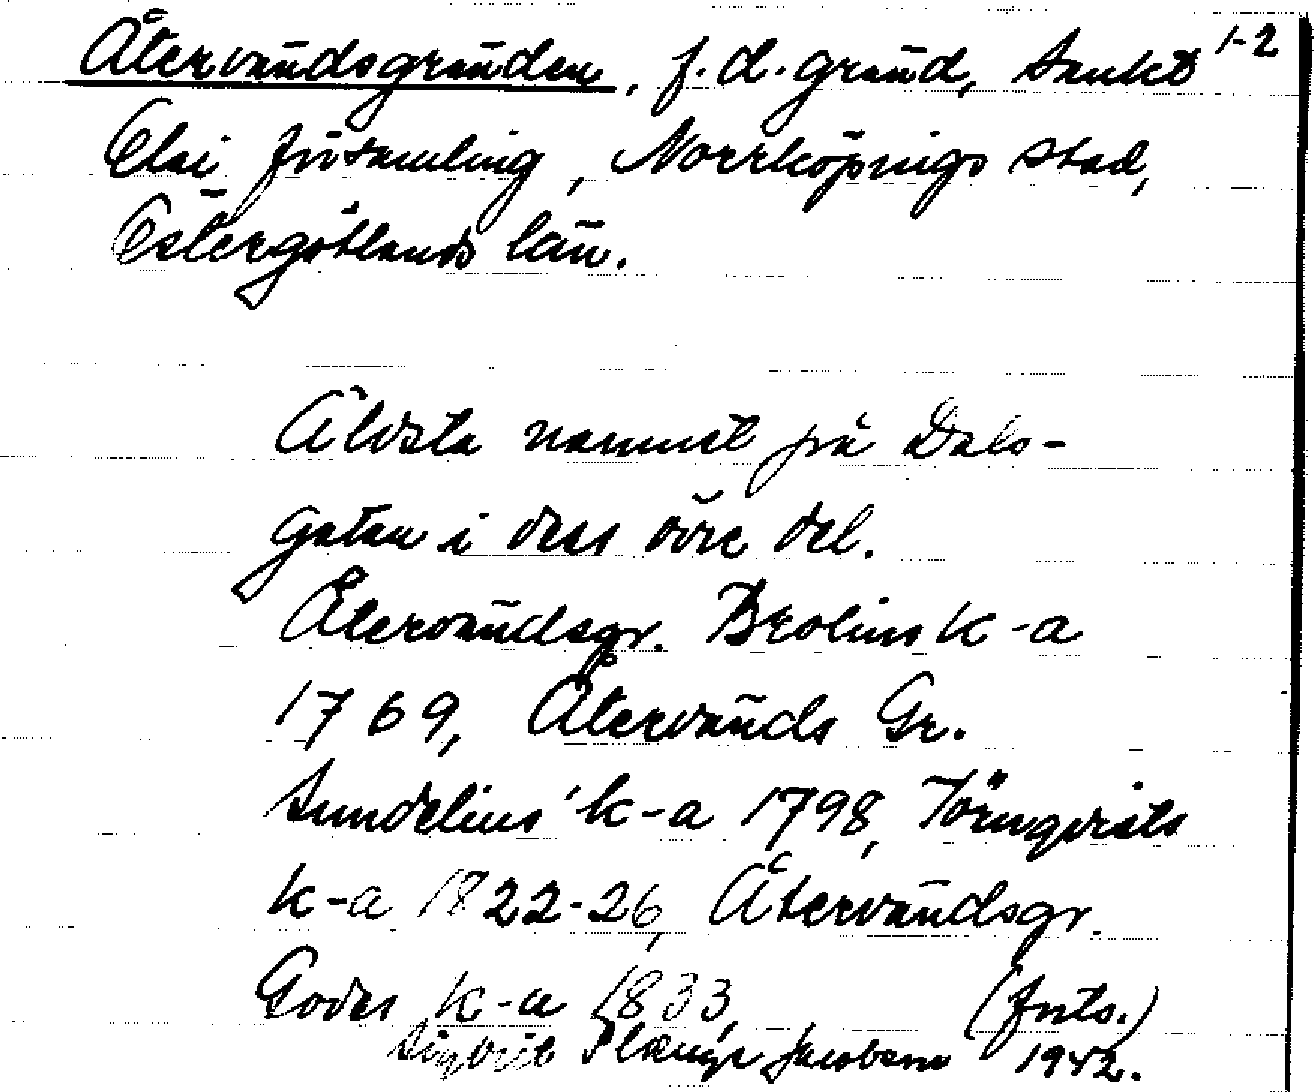 Återvändsgränden, f.d. gränd, Sankt 1-2
Olai församling, Norrköpings stad,
Östergötlands län.
Äldsta namnet på Dals-
gatan i dess övre del.
Återvändsgr. Brolins k-a
1769, Återvänds Gr.
Sundelius' k-a 1798, Törnqvists
k-a 1822-26, Återvändsgr.
Godes k-a 1833, (forts.)
Sigbrit Plænge Jacobson 1942.